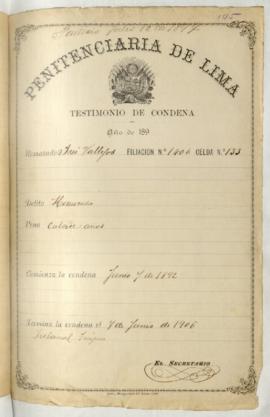 145
PENITENCIARIA DE LIMA
TESTIMONIO DE CONDENA
Año de 189
Rematado José Vallejos FILIACION N.º 1406 CELDA N.º 133
Delito Homicidio
Pena Catorce años
Comienza la condena Junio 7 de 1892
Termina la condena el 7 de Junio de 1906
Tribunal
EL SECRETARIO